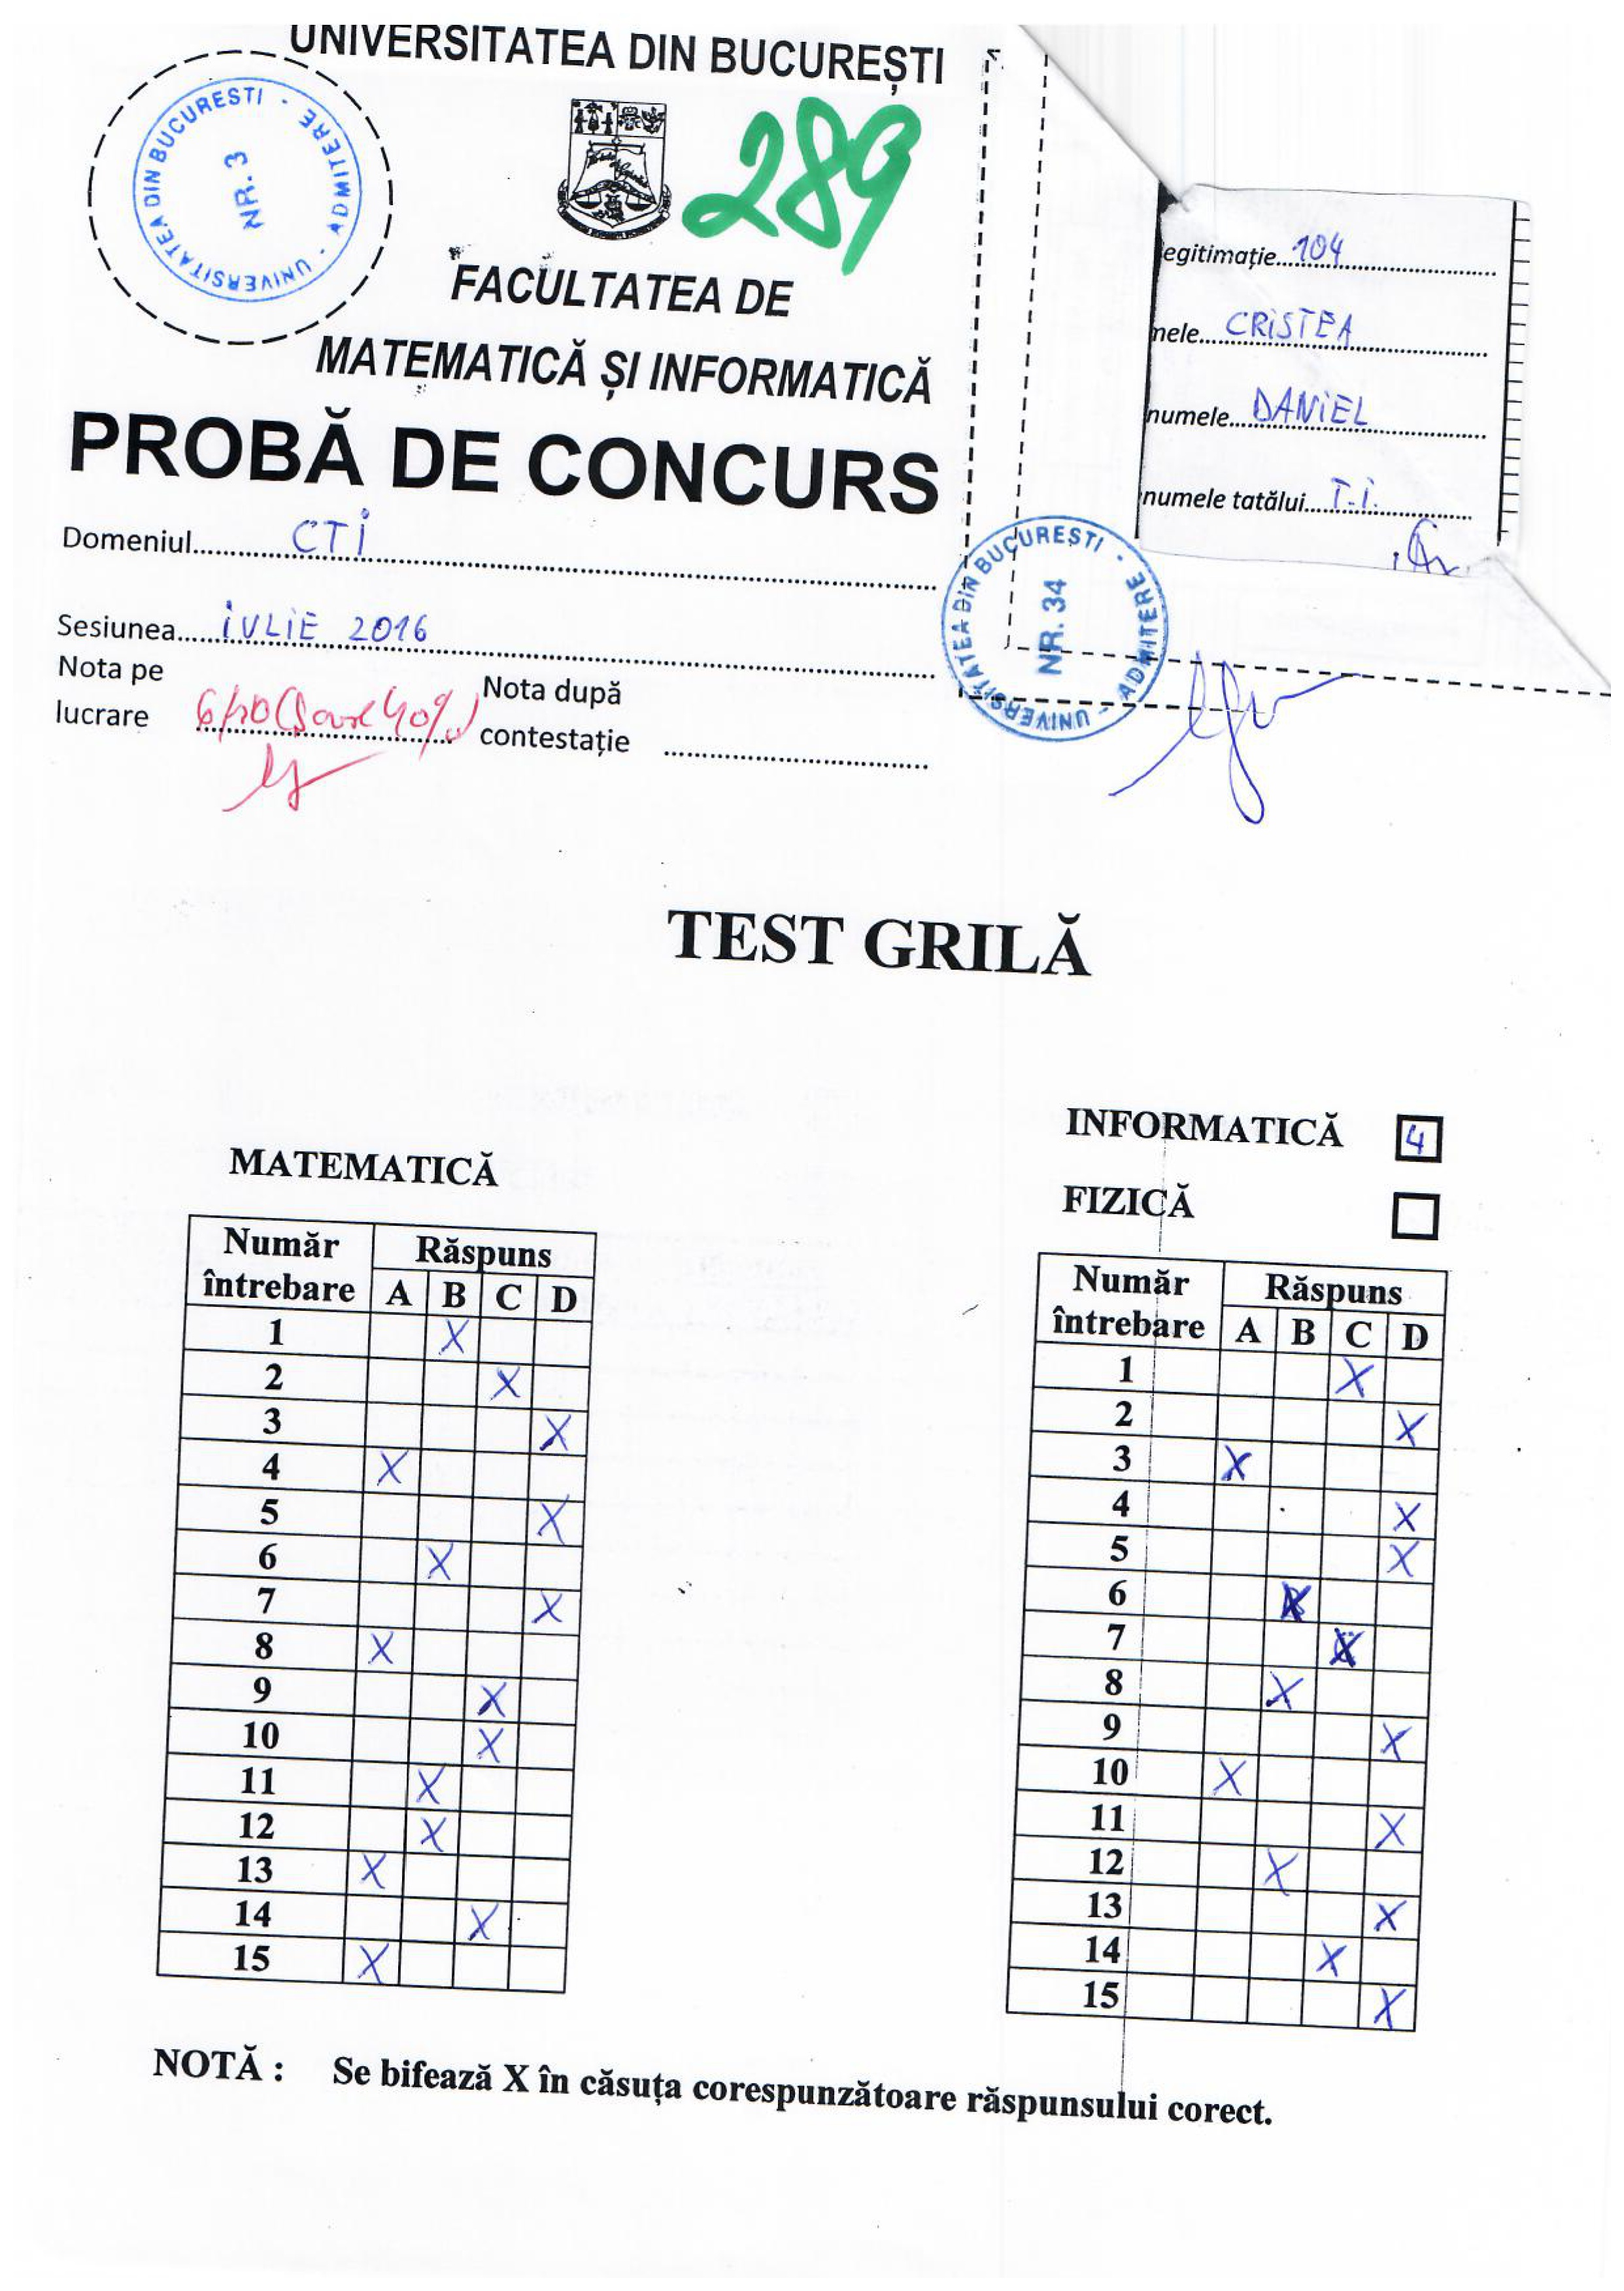 UNIVERSITATEA DIN BUCUREȘTI
UNIVERSITATEA DIN BUCURESTI - ADMITERE -
NR. 3
289
FACULTATEA DE
MATEMATICĂ ȘI INFORMATICĂ
PROBĂ DE CONCURS
Domeniul CTI
Sesiunea IULIE 2016
Nota pe
lucrare
Nota după
contestație
egitimație 104
mele CRISTEA
numele DANIEL
numele tatălui T.I.
UNIVERSITATEA DIN BUCUREȘTI - ADMITERE -
NR. 34
TEST GRILĂ
MATEMATICĂ
Număr întrebare Răspuns
A B C D
1 X
2 X
3 X
4 X
5 X
6 X
7 X
8 X
9 X
10 X
11 X
12 X
13 X
14 X
15 X
INFORMATICĂ 4
FIZICĂ
Număr întrebare Răspuns
A B C D
1 X
2 X
3 X
4 X
5 X
6 X
7 X
8 X
9 X
10 X
11 X
12 X
13 X
14 X
15 X
NOTĂ : Se bifează X în căsuța corespunzătoare răspunsului corect.